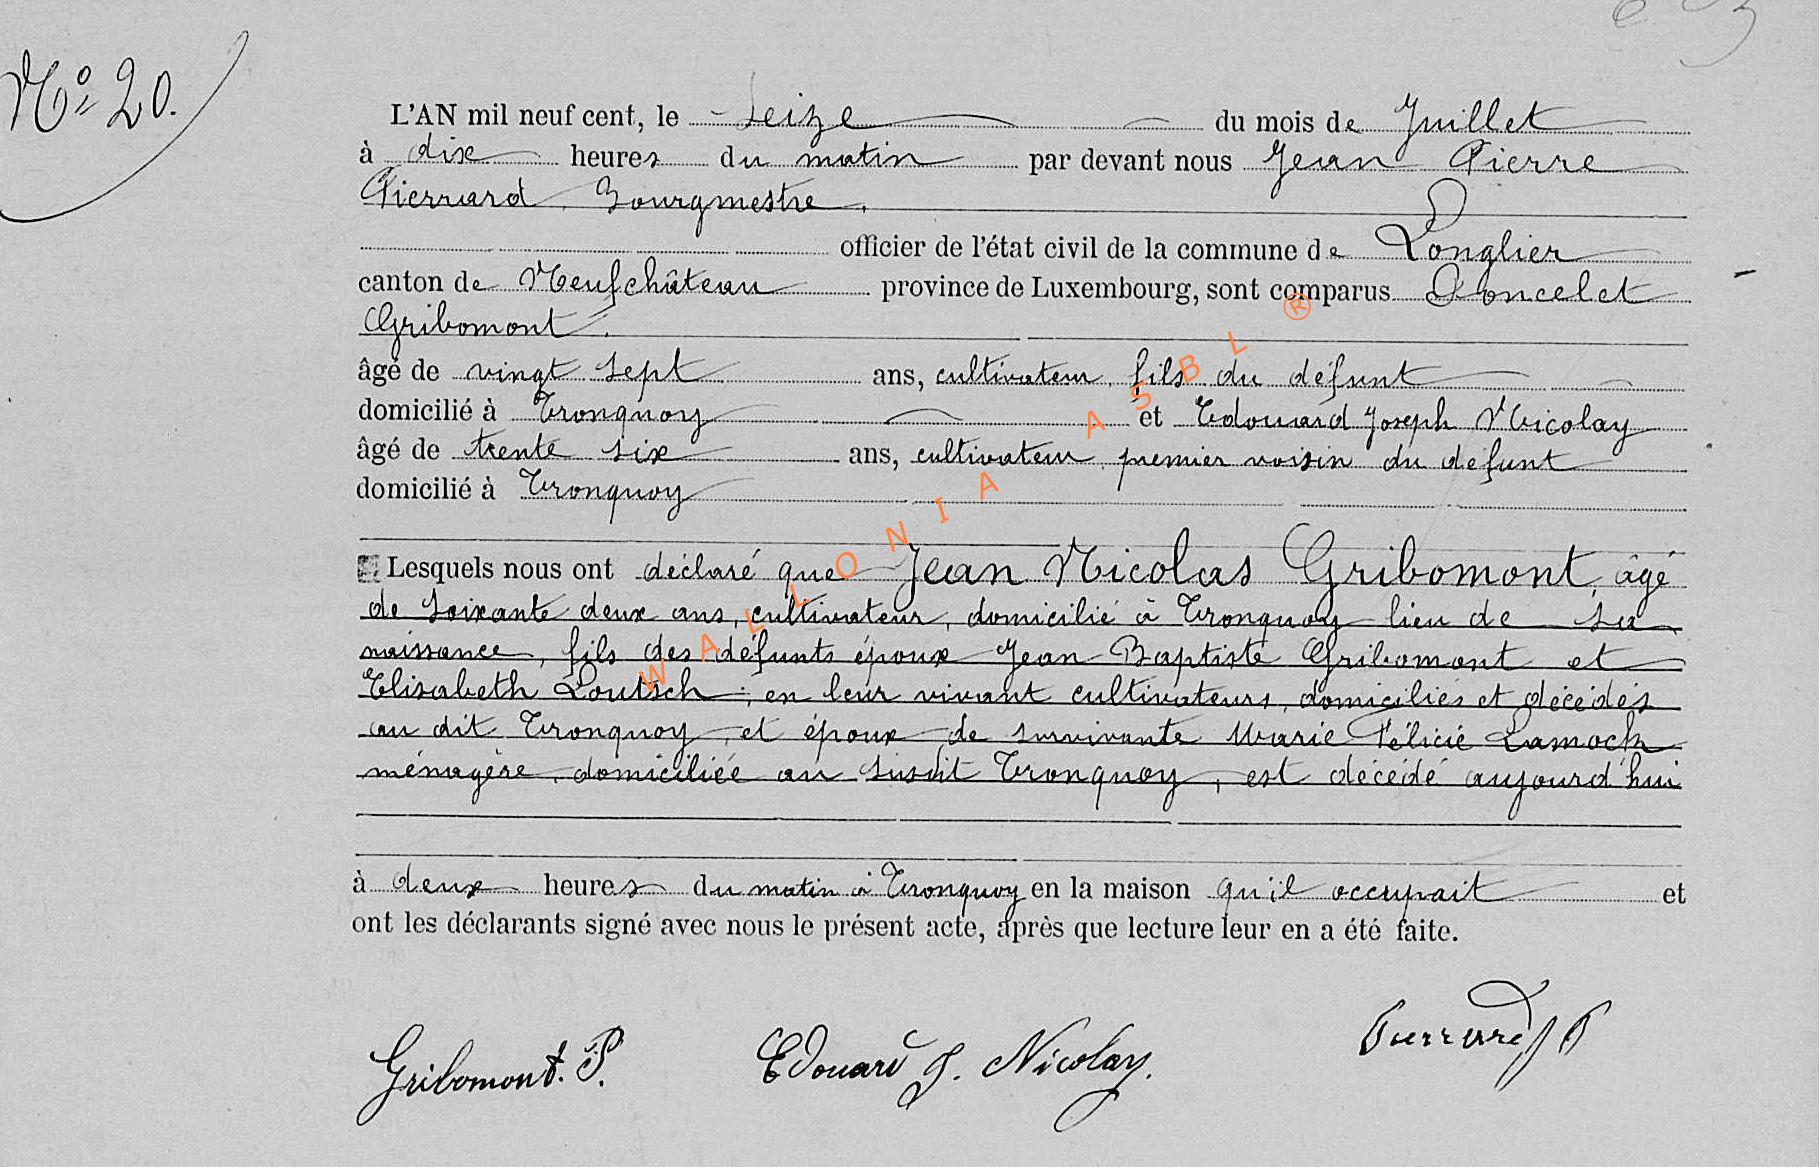 Nº 20.
L'AN mil neuf cent, le Seize du mois de Juillet
à dix heures du matin par devant nous Jean Pierre
Pierrard, Bourgmestre,
officier de l'état civil de la commune de Longlier
canton de Neufchâteau province de Luxembourg, sont comparus Poncelet
Gribomont,
âgé de vingt sept ans, cultivateur, fils du défunt
domicilié à Tronquoy et Edouard Joseph Nicolay
âgé de trente six ans, cultivateur, premier voisin du défunt
domicilié à Tronquoy
Lesquels nous ont déclaré que Jean Nicolas Gribomont, âgé
de soixante deux ans, cultivateur, domicilié à Tronquoy lieu de sa
naissance, fils des défunts époux Jean Baptiste Gribomont et
Elisabeth Loutsch, en leur vivant cultivateurs, domiciliés et décédés
au dit Tronquoy, et époux de survivante Marie Félicie Lamock
ménagère, domiciliée au susdit Tronquoy, est décédé aujourd'hui
à deux heures du matin à Tronquoy en la maison qu'il occupait et
ont les déclarants signé avec nous le présent acte, après que lecture leur en a été faite.
Gribomont. P.
Edouard J. Nicolay.
Pierrard J P
WALLONIA ASBL ®